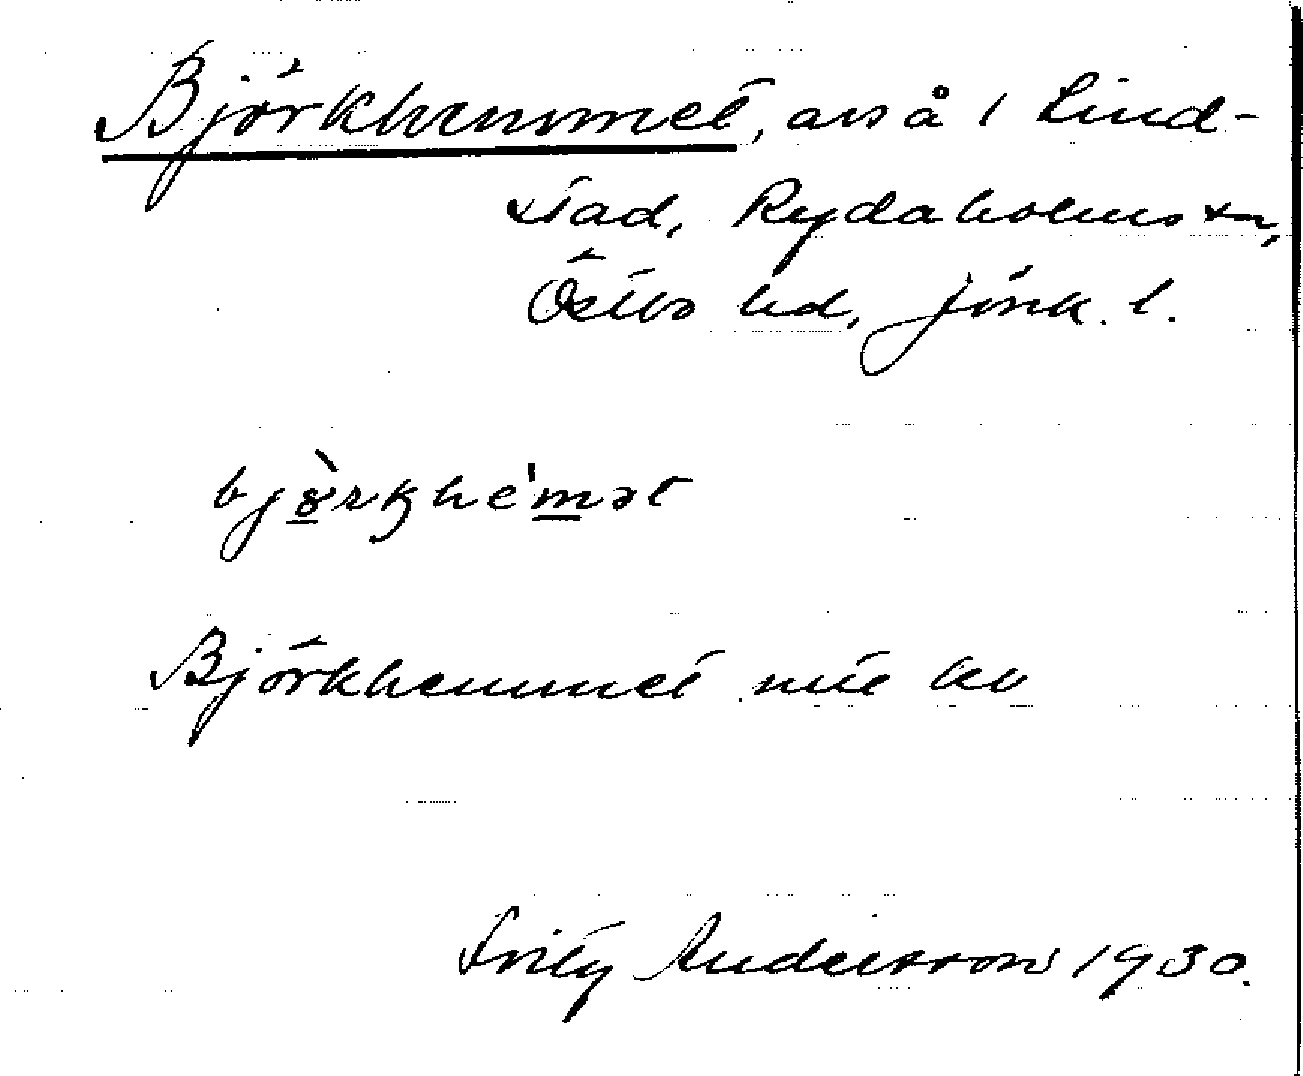 Björkhemmet, avs å 1 Lind-
stad, Rydaholms sn,
Östbo hd, Jönk. l.
bjö̀rkhe'mət
Björkhemmet nu
Fritz Andersson 1930.